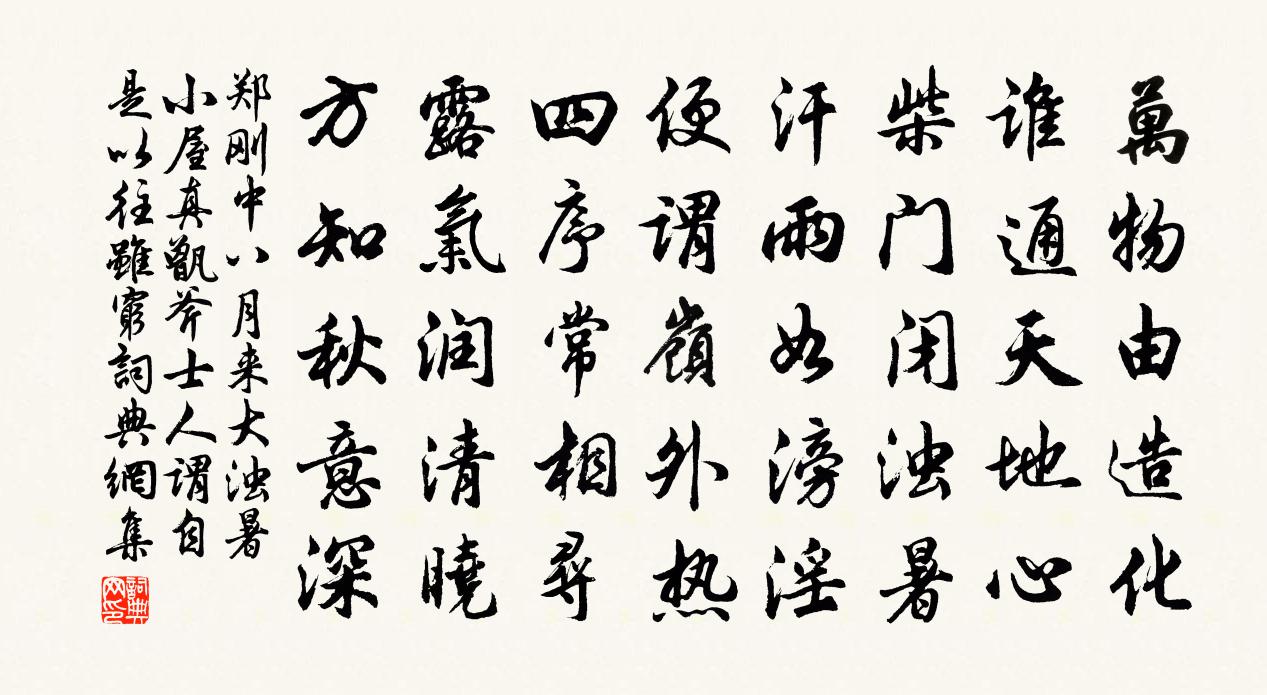 萬物由造化
谁通天地心
柴门闭浊暑
汗雨如滂淫
便谓嶺外热
四序常相尋
露氣润清曉
方知秋意深
郑刚中八月来大浊暑
小屋真甑斧士人谓自
是以往雖窮詞典網集